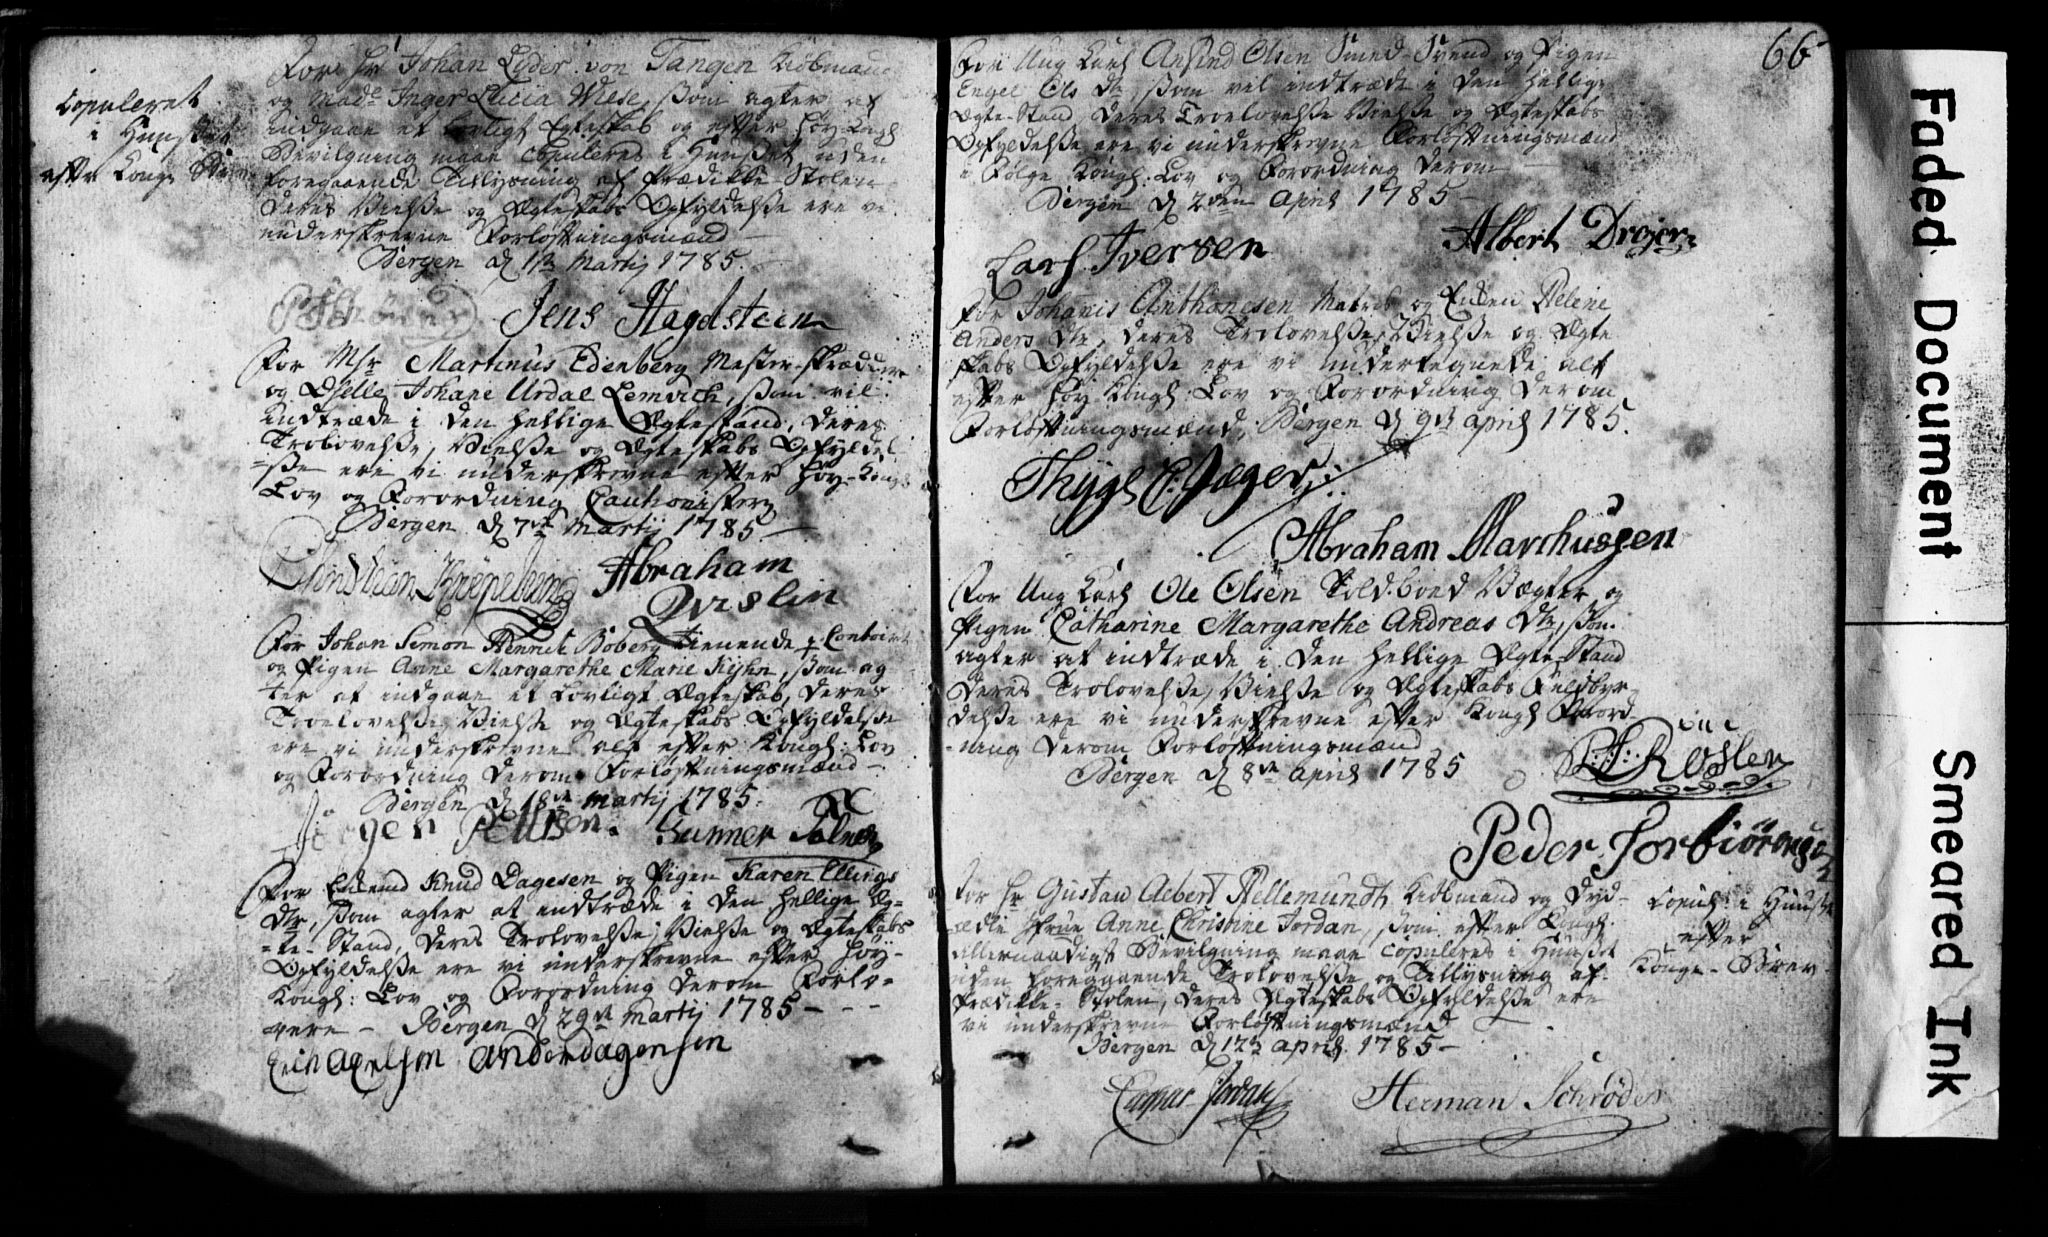 Copuleret
i Huuset
efter Kong: Brev
For Hr Johan Lyder von Tangen Kiøbmand
og Madle Inger Lucia Wiese, som agter at
indgaae et lovligt Egteskab og efter Høy-Kongl:
Bevilgning maae Copuleres i Huuset, uden
foregaaende Tillysning af Prædikke-Stolen
Deres Vielsse og Ægteskabs Opfyldelsse ere vi
underskrevne Forløftningsmænd
Bergen d 1te Martij 1785.
Jens Hagelsteen
For Msr Martinus Edenberg Mester-Skrædder
og Dydelle Johane Urdal Lemvich, som vil
indtræde i den hellige Ægtestand, deres
Trolovelsse, Vielsse og Ægteskabs Opfyldel
=sse ere vi underskrevne efter Høy-Kongl
Lov og Forordning Cautionister
Bergen d 7de Martij 1785
Christian Krøpelin
Abraham
Qvislin
For Johan Simon Henrich Boberg tienende p Contoiret
og Pigen Anne Margarethe Marie Kyhn, som ag
ter at indgaae et Lovligt Ægteskab, deres
Troelovelsse Vielsse og Ægteskabs Opfyldelsse
ere vi underskrevne alt efter Kongl: Lov
og Forordning derom Forløftningsmænd
Bergen d 18de Martij 1785.
Jørgen
Gunner
For Enkemd Knud Dagesen og Pigen Karen Ellings
Dtr, som agter at indtræde i den hellige Æg=
=te-Stand, deres Trolovelsse, Vielsse og Ægteskabs
Opfyldelsse ere vi underskrevne efter Høy-
Kongl: Lov og Forordning derom Forlo=
vere - Bergen d 29de Martij 1785 -
Erich Axelsen Anders dagensen
66
For Ung Karl Ansind Olsen Smed-Svend og Pigen
Engel Ols Dtr, som vil indtræde i den hellige
Ægte-Stand, deres Troelovelsse Vielsse og Ægteskabs
Opfyldelsse ere vi underskrevne Forløftningsmænd
i følge Kongl: Lov og Forordning derom
Bergen d 2den April 1785
Lars Iversen
Albert Drejer
For Johanis Anthonesen Matros og Enken Helene
Anders Dtr, deres Trolovelsse, Vielsse og Ægte
skabs Opfyldelsse ere vi undertegnede alt
efter Høy Kongl: Lov og Forordning derom
Forløftningsmænd, Bergen d 9de April 1785.
Thyge C: Jæger
Abraham Marchussen
For Ung Karl Ole Olsen Toldboed Vægter og
Pigen Catharine Margarethe Andreas Dtr, som
agter at indtræde i den hellige Ægte-Stand
deres Trolovelsse, Vielsse og Ægteskabs Fuldbyr-
delsse ere vi underskrevne efter Kongl Forord-
-ning derom Forløftningsmænd
Bergen d 8de April 1785
Roslen
Peder Torbiørensen
For Hr Gustav Albert Hellemundt Kiøbmand og Dyd-
ædle Jfrue Anne Christine Jordan, som efter Kongl:
allernaadigst Bevilgning maae Copuleres i Huuset
uden foregaaende Trolovelsse og Tillysning af
Prædikke-Stolen, deres Ægteskabs Opfyldelsse ere
vi underskrevne Forløftningsmænd
Bergen d 12te April 1785
Copul: i Huuset
efter
Konge-Brev
Caspar Jordan
Herman Schrøder
Faded Document
Smeared Ink